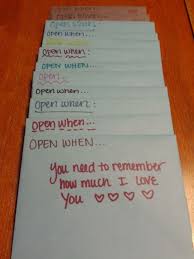 Open when...
Open when...
Open when:
Open when...
OPEN WHEN...
open when...
OPEN WHEN...
Open
Open when...
Open when:
open when...
OPEN WHEN...
You need to remember
how much I love
You ♡ ♡ ♡ ♡